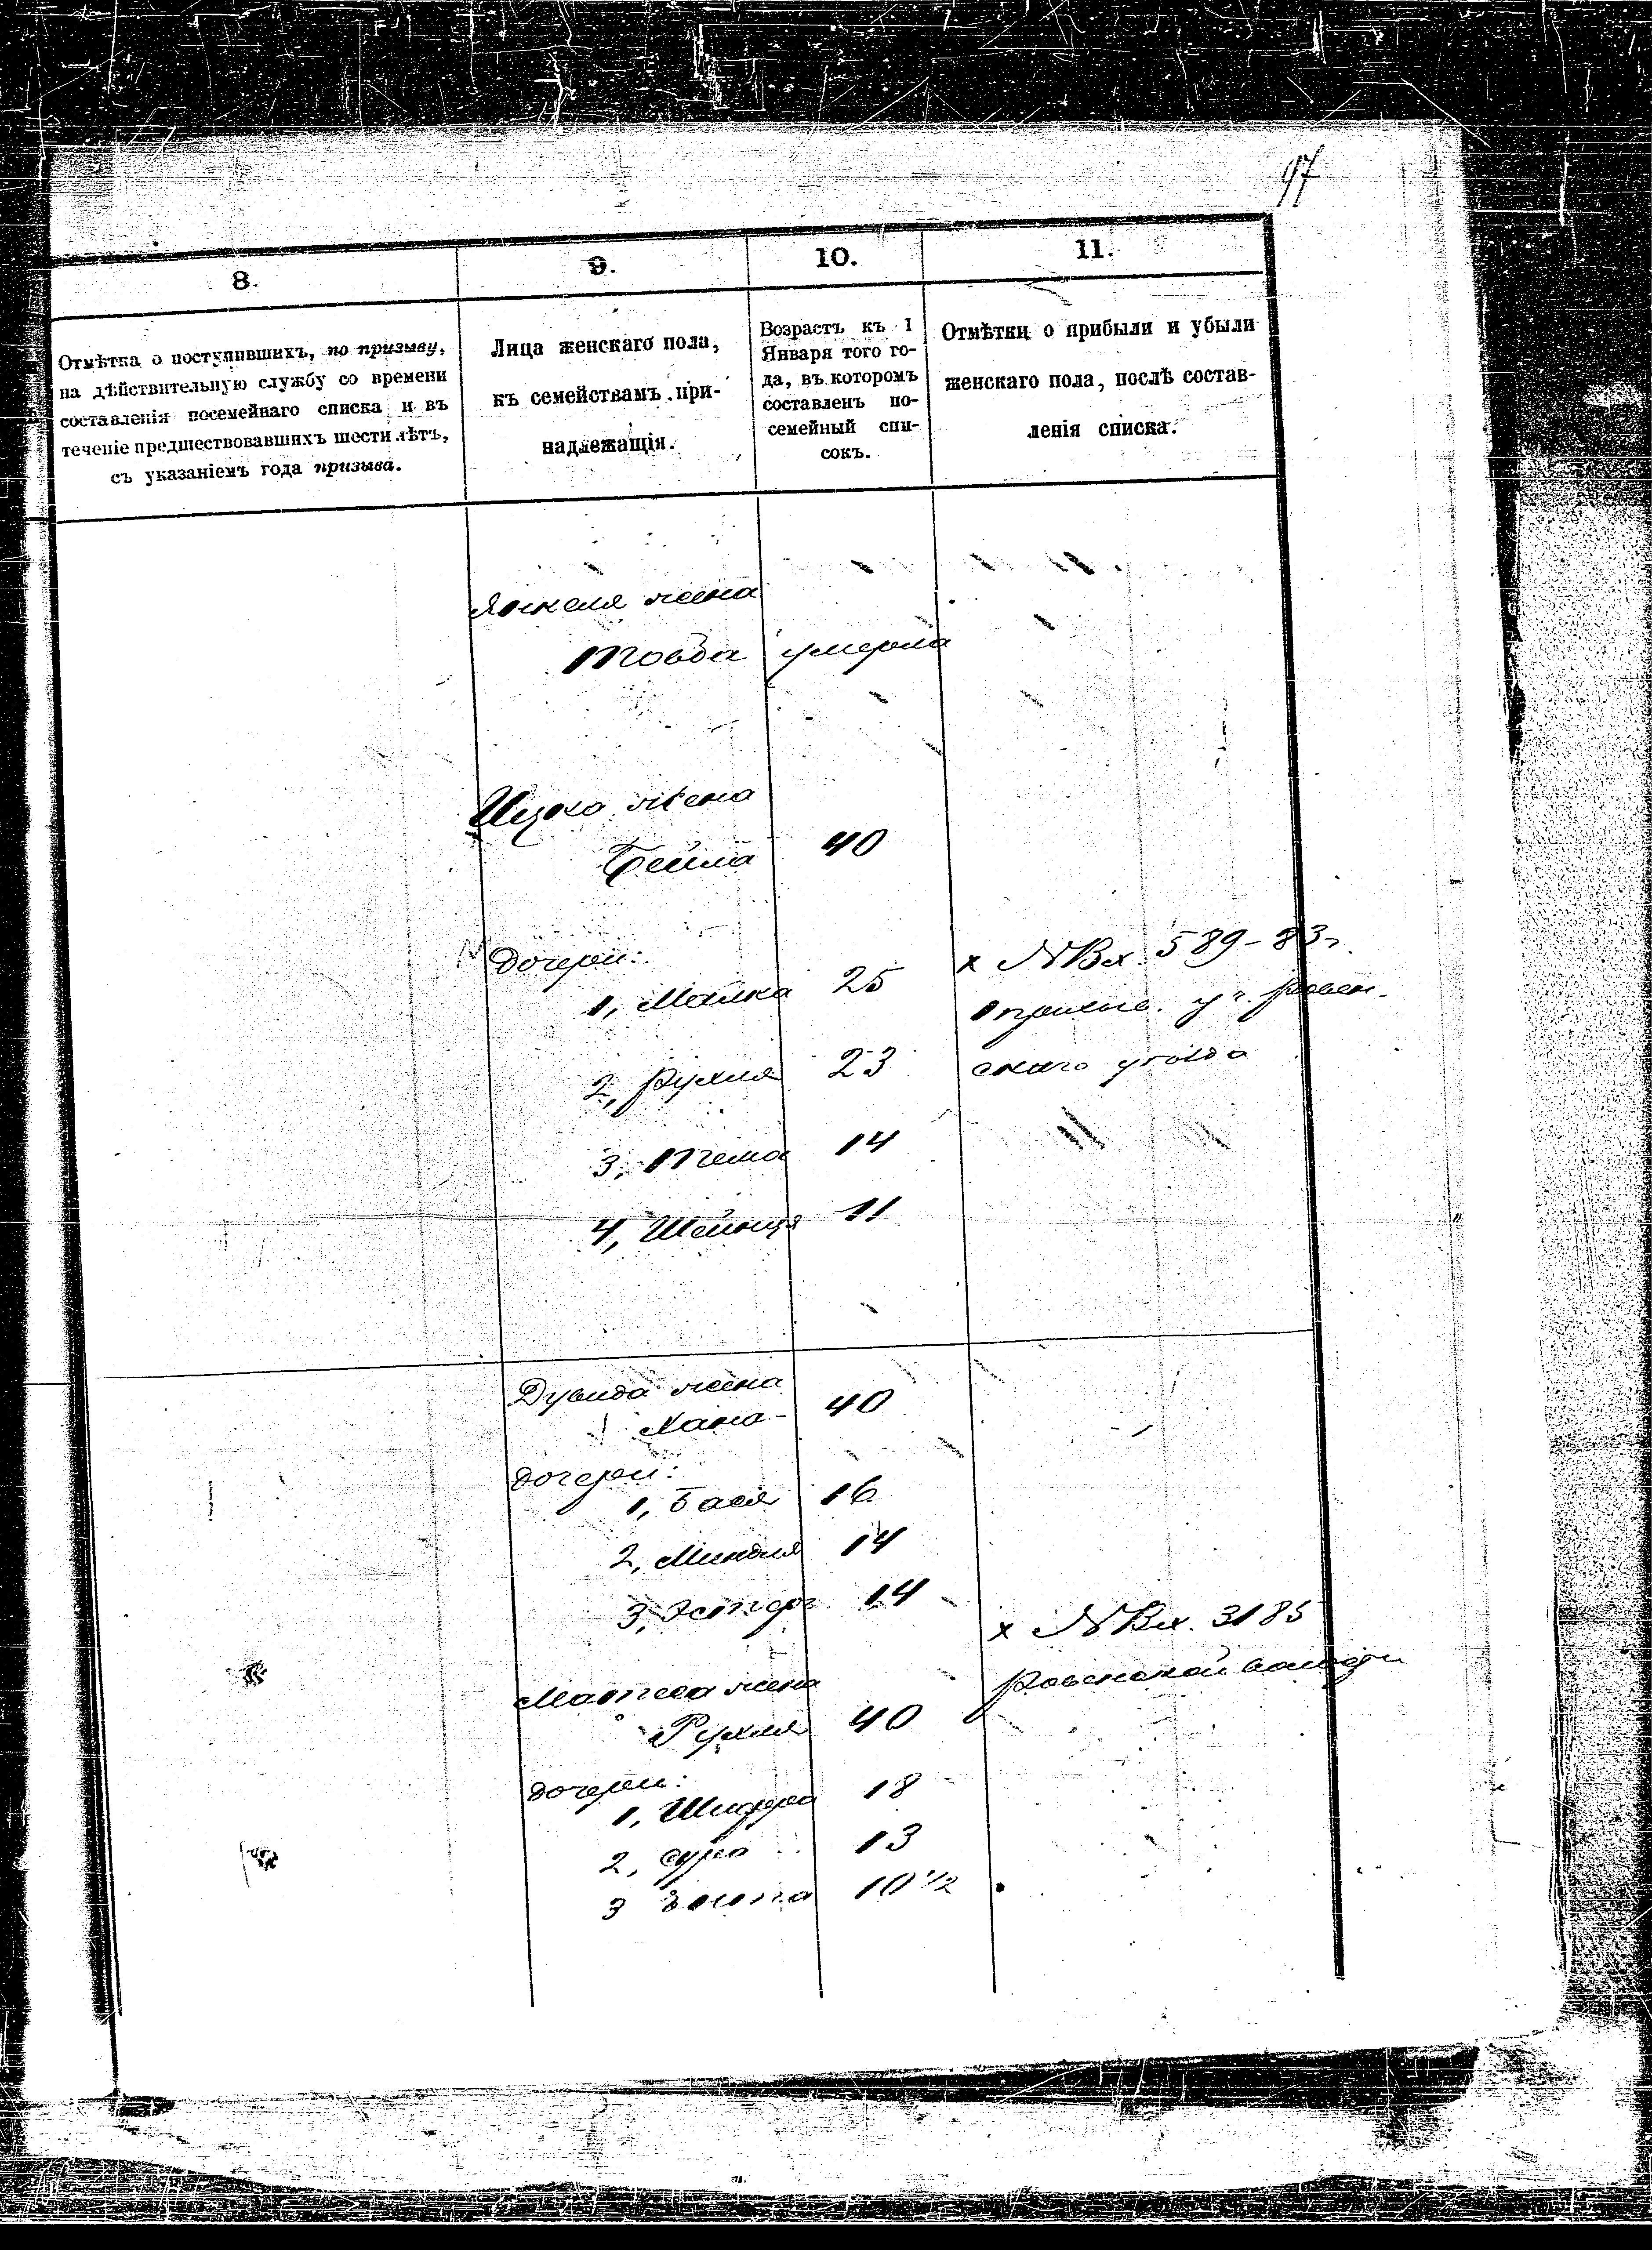 97
8.
9.
10.
11.
Отмѣтка о поступившихъ, по призыву,
на дѣйствительную службу со времени
составленія посемейнаго списка и въ
теченіе предшествовавшихъ шести лѣтъ,
съ указаніемъ года призыва.
Лица женскаго пола,
къ семействамъ при-
надлежащія.
Возрастъ къ 1
Января того го-
да, въ которомъ
составленъ по-
семейный спи-
сокъ.
Отмѣтки о прибыли и убыли
женскаго пола, послѣ состав-
ленія списка.
Янкеля жена
Товба умерла
Ицко жена
Бейла 40
дочери:
1, Малка 25
2, Рухля 23
3, Тема 14
4, Шейнця 11
х №Вх. 589-83г.
1 призыв. уч. Ровен.
скаго уѣзда
Дувида жена
Хана- 40
дочери:
1, Бася 16
2, Миндля 14
3, Эстеръ 14
Матеса жена
Рухля 40
х №Вх. 3185
Ровенской
дочери:
1, Шифра 18
2, Сура 13
3 10 1/2